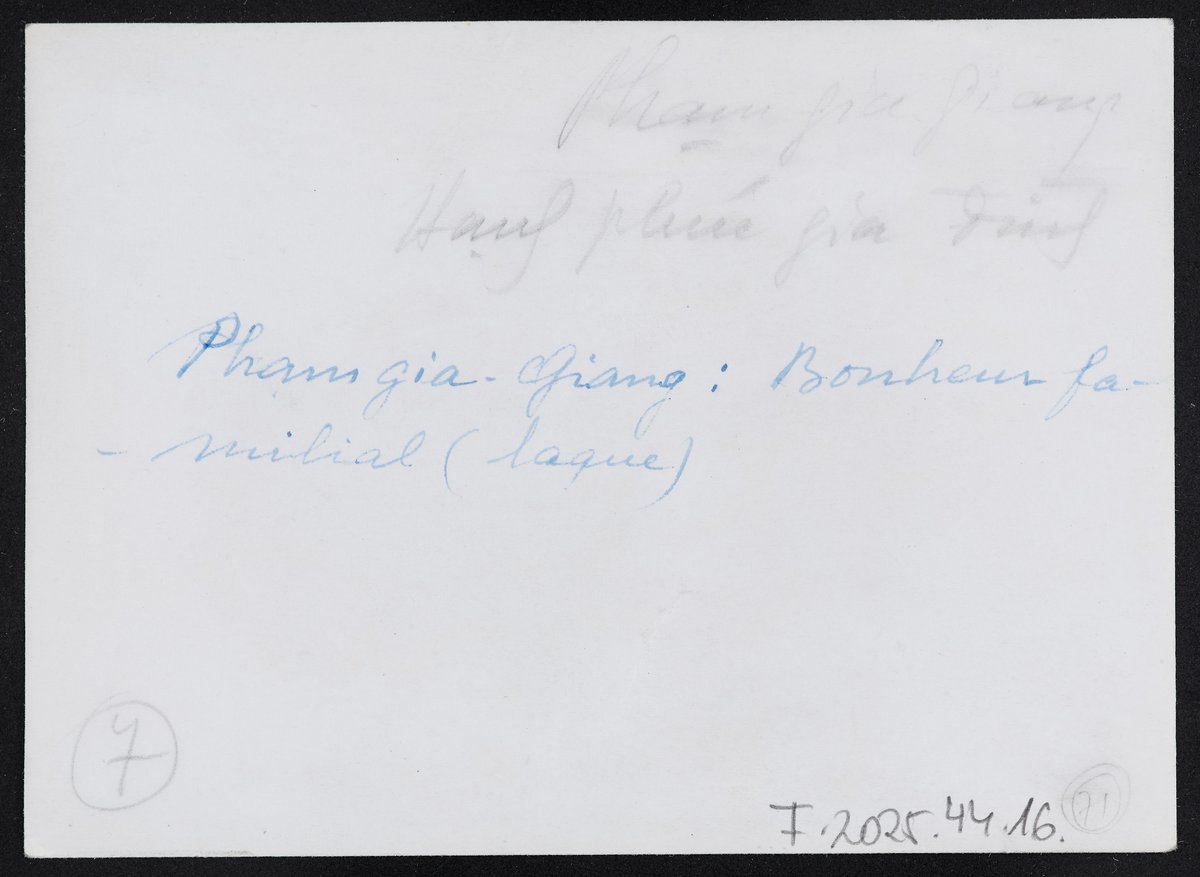 Phạm gia Giang
Hạnh phúc gia đình
Pham gia - Giang : Bonheur fa-
- milial ( laque)
7
I.2025.44.16.
71